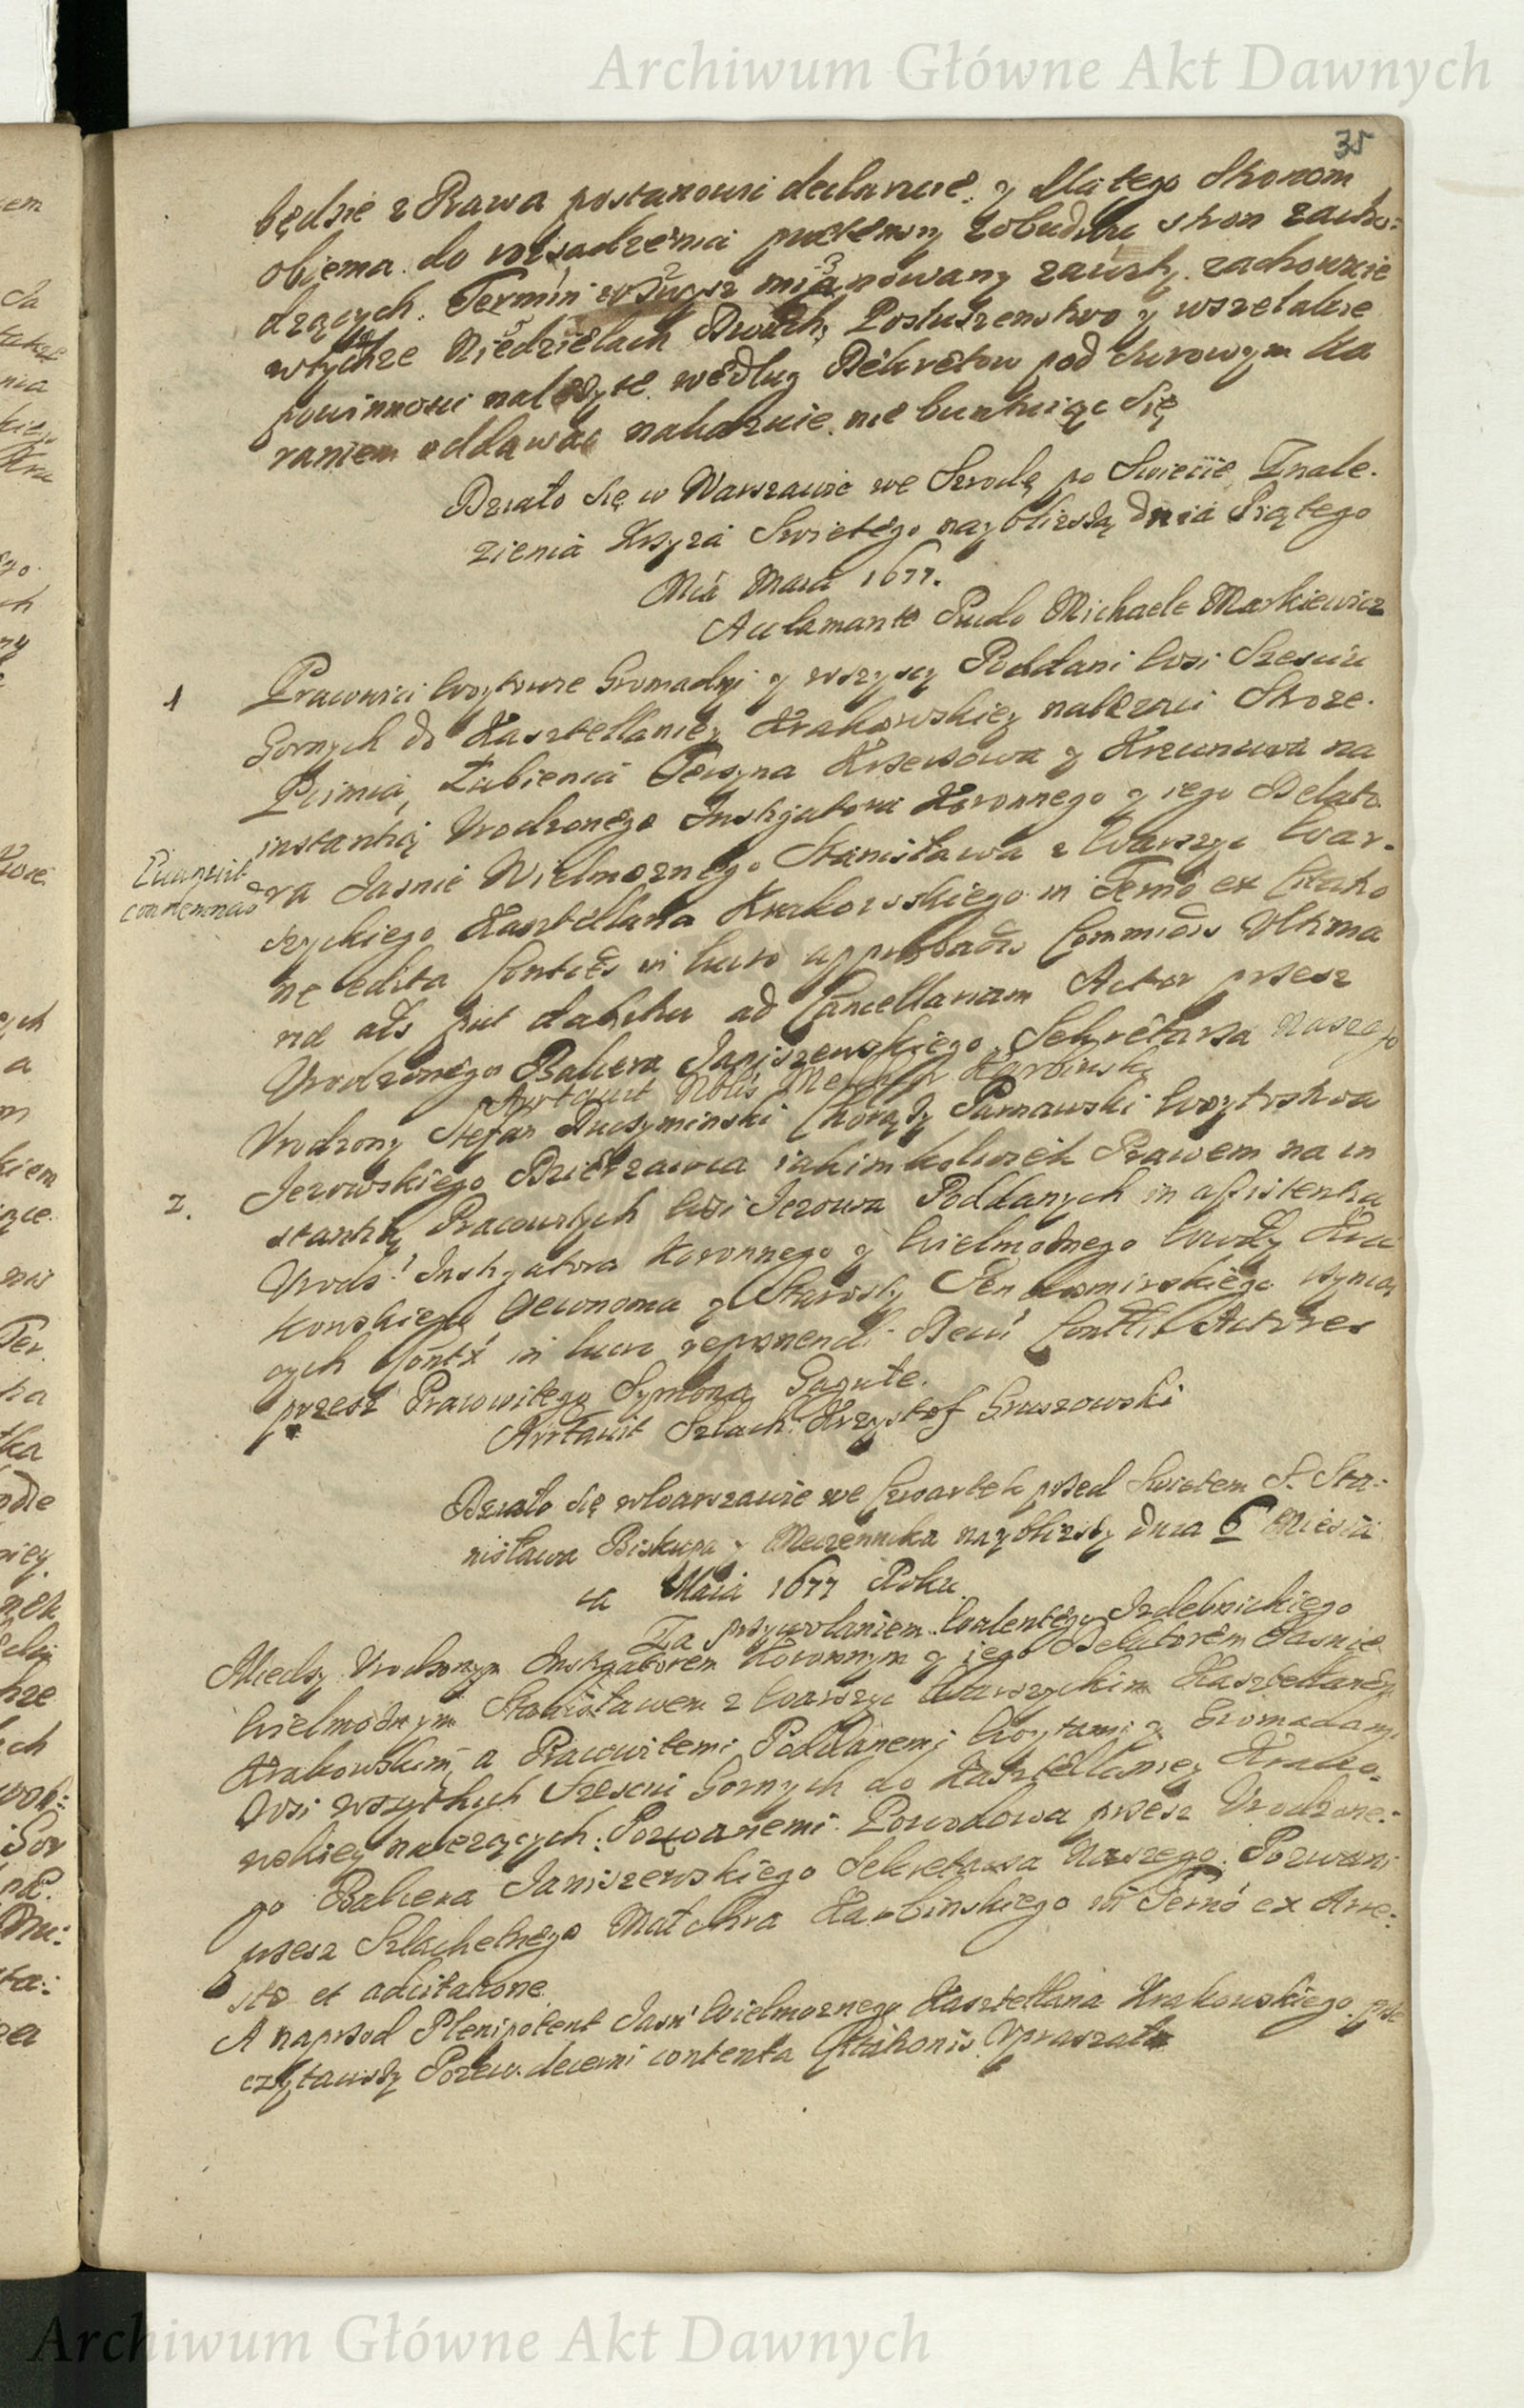 Archiwum Główne Akt Dawnych
35
będzie z Prawa postanowi declaruie. y dla tego Stronom
obiema do rozsądzenia przytemny zobudwu stron zacho:
dzących. Termin wzwysz mianowany zawity zachowuie
wtychze Niedzielach Dwuch, Posłuszenstwo y wszelakie
powinnosci nalezyte według Dekretow pod surowym ka
raniem oddawac nakazuie. nie buntuiąc się
Działo się w Warszawie we Srzodę po Swięcie Znale.
zienia Krzyza Swietego nayblizszą dnia Piątego
Mca Maia 1677.
Acclamante Prudo Michaele Markiewicz
1 Pracowici Woytowie Gromadny y wszyscy Poddani Wsi Szesciu
Gornych do Kasztellaniey Krakowskiey nalezaci Stroze.
Pcimia, Łubienia Tęczyna Krzeczowa y Krzunowa na
instantią Vrodzonego Instigatora Koronnego y iego Delato
ra Jasnie Wielmoznego Stanisława z Warszyc War.
condemnao
szyckiego Kasztellana Krakowskiego in Termo ex Citatio
ne edita Conties in loco approbaois Commiois Vltima
rid als put dabitur ad Cancellariam Actor przesz
Vrodzonego Balcera Janiszewskiego Sekretarza naszego
Arrtavit Nblis Melchior Karbinski
Vrodzony Stefan Ruszyminski Chorąży Parnawski Woytostwa
2. Jezowskiego Dzierzawca iakimkolwiek Prawem na in
stantią Pracowitych Wsi Jezowa Poddanych in assistentia
Vrodz: Instygatora Koronnego y Wielmoznego
kowskiego Oeconoma y Starosty Sendomirskiego czynią
cych Contx in loco reponendi Decri Conttis Actores
przesz Pracowitego Symona Garułe.
Arrtavit Szlach: Krzysztof Gruszowski
Działo się wWarszawie we Czwartek przed Swietem S. Sta:
nisława Biskupa y Męczennika nayblizszy dnia 6 Miesią
ca Maia 1677 Roku.
Za przywołaniem Walentego Izdebnickiego
Miedzy Vrodzonym Instigatorem Koronnym y iego Delatorem Jasnie
Wielmoznym Stanisławem z Warszyc Warszyckim Kasztellanem
Krakowskim, a Pracowitemi Poddanemi Woytami y Gromadami
Wsi wszytkich Szesciu Gornych do Kasztellaniey Krako.
wskiey nalezących: Pozwanemi. Powodowa przesz Vrodzone:
go Balcera Janiszewskiego Sekretarza Naszego. Pozwani
przesz Szlachetnego Malchra Karbinskiego in Termo ex Arre:
sto et adcitatione.
A naprzod Plenipotent Jasn Wielmoznego Kasztellana Krakowskiego prze
czytawszy Pozew. decerni contenta Citationis Vpraszał
Archiwum Główne Akt Dawnych